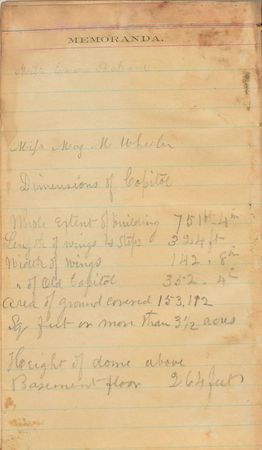 MEMORANDA.
Miss
Miss Meg. M. Wheeler
Dimensions of Capitol
Whole Extent of building 751 ft 4 in
Length of wings & Steps 324 ft
Width of wings 142 . 8 in
" of Old Capitol 352 . 4 in
Area of ground covered 153,112
Sq feet or more than 3½ acres
Height of dome above
Basement floor 264 feet